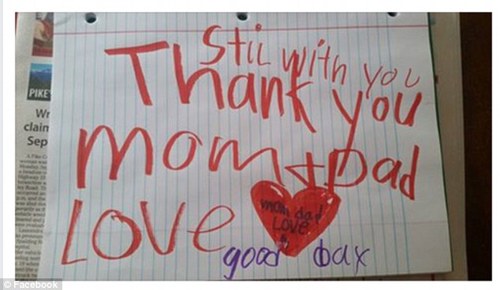 Stil with you
Thank you
mom + Dad
Love
mom dad
Love
good bax
PIKE
Wr
claim
Sep
© Facebook